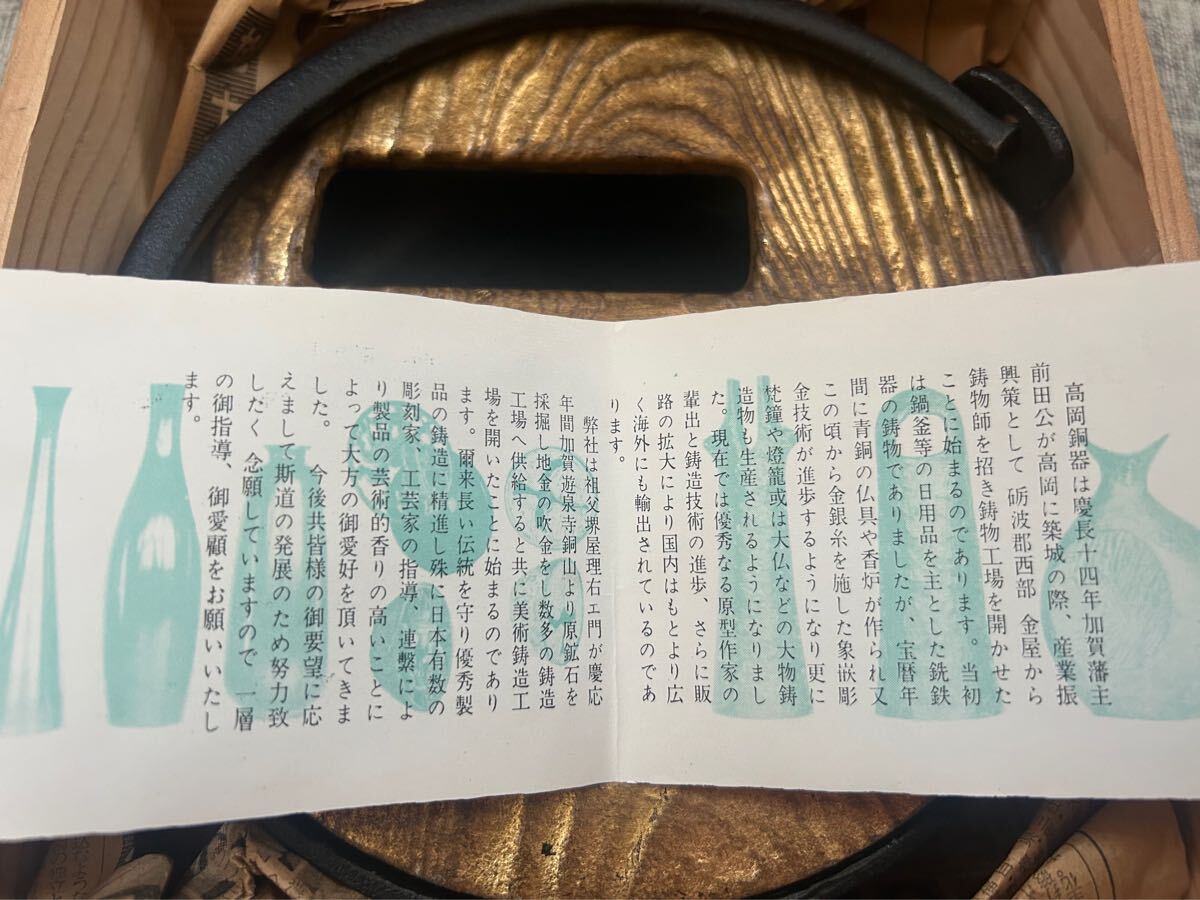 高岡銅器は慶長十四年加賀藩主
前田公が高岡に築城の際、産業振
興策として 砺波郡西部 金屋から
鋳物師を招き鋳物工場を開かせた
ことに始まるのであります。当初
は鍋釜等の日用品を主とした銑鉄
器の鋳物でありましたが、宝暦年
間に青銅の仏具や香炉が作られ又
この頃から金銀糸を施した象嵌彫
金技術が進歩するようになり更に
梵鐘や燈籠或は大仏などの大物鋳
造物も生産されるようになりまし
た。現在では優秀なる原型作家の
輩出と鋳造技術の進歩、さらに販
路の拡大により国内はもとより広
く海外にも輸出されているのであ
ります。
弊社は祖父堺屋理右エ門が慶応
年間加賀遊泉寺銅山より原鉱石を
採掘し地金の吹金をし数多の鋳造
工場へ供給すると共に美術鋳造工
場を開いたことに始まるのであり
ます。爾来長い伝統を守り優秀製
品の鋳造に精進し殊に日本有数の
彫刻家、工芸家の指導、連繋によ
り製品の芸術的香りの高いことに
よって大方の御愛好を頂いてきま
した。 今後共皆様の御要望に応
えまして斯道の発展のため努力致
したく 念願していますので 一層
の御指導、御愛顧をお願いいたし
ます。